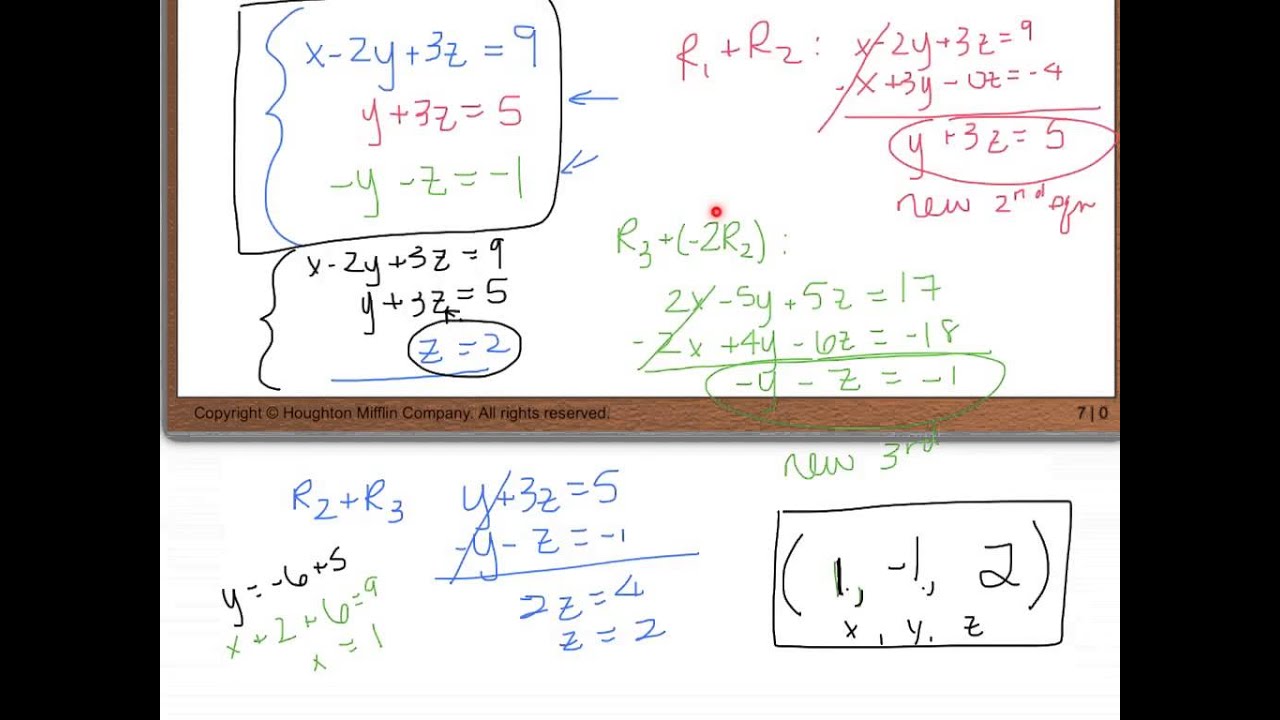 x-2y+3z=9
y+3z=5
-y-z=-1
x-2y+3z=9
y+3z=5
z=2
R₁+R₂: x-2y+3z=9
-x+3y-0z=-4
y+3z=5
new 2nd eqn
R₃+(-2R₂):
2x-5y+5z=17
-2x+4y-6z=-18
-y-z=-1
new 3rd
Copyright © Houghton Mifflin Company. All rights reserved.
7 | 0
R₂+R₃ y+3z=5
-y-z=-1
2z=4
z=2
y=-6+5
x+2+6=9
x=1
(1,-1,2)
x, y, z